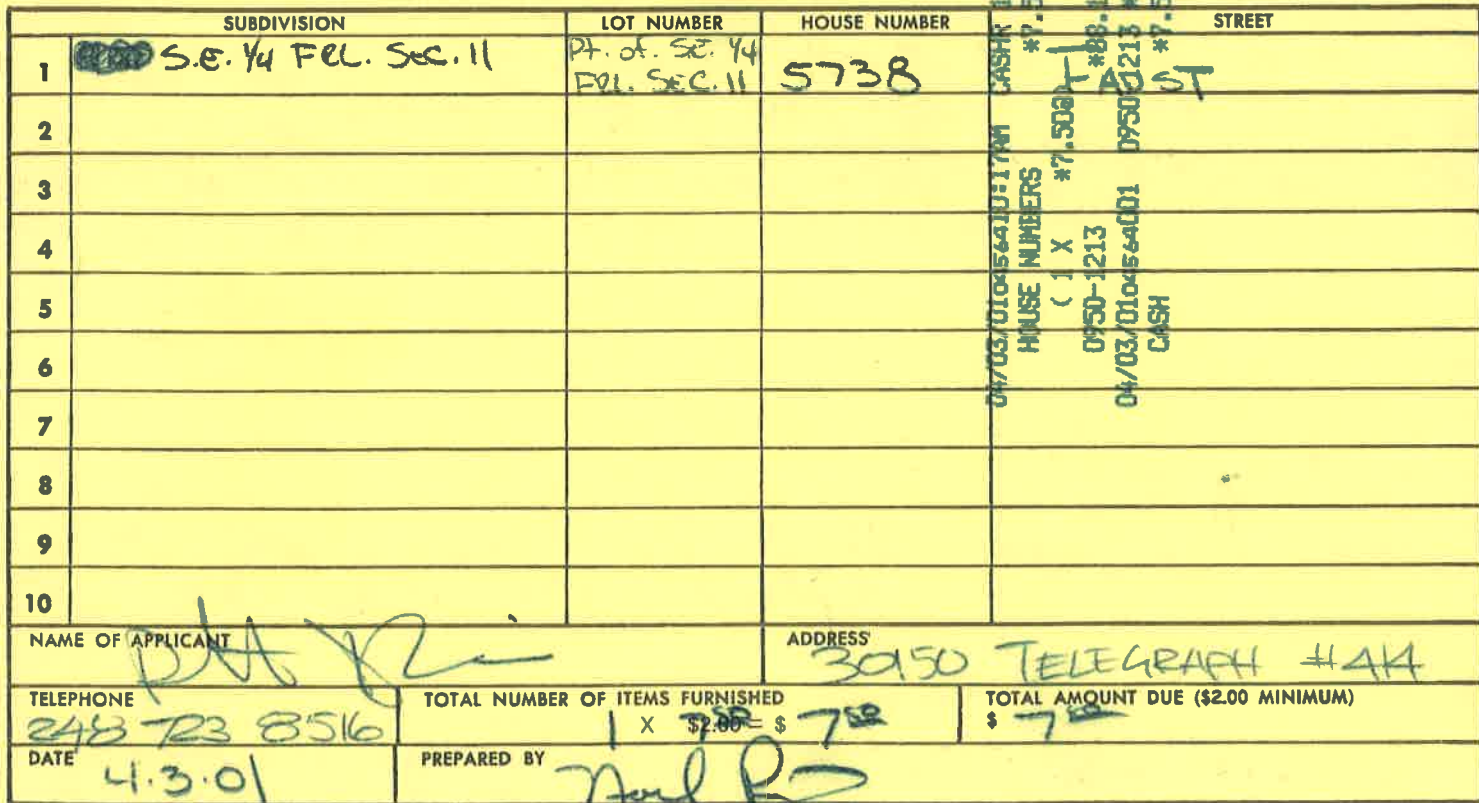 SUBDIVISION LOT NUMBER HOUSE NUMBER STREET
1 S.E. 1/4 FRL. SEC. 11 Pt. of. SE. 1/4 5738
FRL. SEC. 11
2
3
4
5
6
7
8
9
10
04/03/01 10:17AM CASHR 1
HOUSE NUMBERS *7.5
( 1 X *7.50@
0950-1213
04/03/01 0950 1213
CASH *7.5
NAME OF APPLICANT
ADDRESS
30150 TELEGRAPH #414
TELEPHONE
248 723 8516
TOTAL NUMBER OF ITEMS FURNISHED
1 X $2.00 = $ 7 50
7 50
TOTAL AMOUNT DUE ($2.00 MINIMUM)
$ 7 50
DATE
4.3.01
PREPARED BY